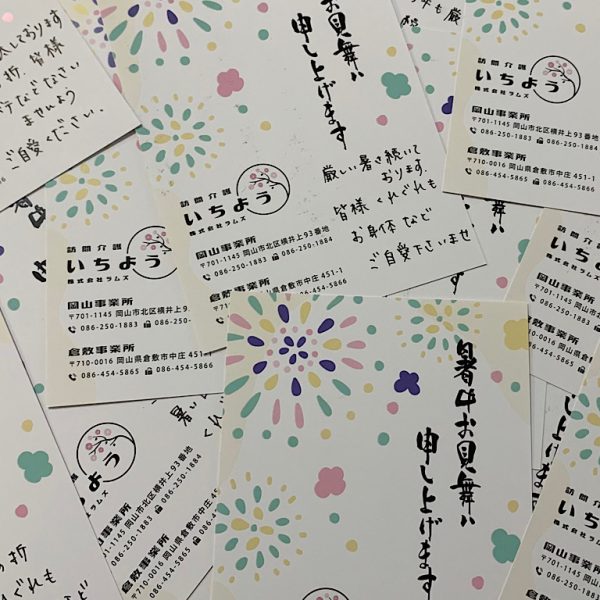 しております
折、皆様
ませんよう
ご自愛ください。
お見舞い
申し上げます
厳しい暑さ続いて
おります。
皆様くれぐれも
お身体など
ご自愛下さいませ
訪問介護
いちよう
株式会社ラムズ
岡山事業所
〒701-1145 岡山市北区横井上93番地
086-250-1883 086-250-1884
倉敷事業所
〒710-0016 岡山県倉敷市中庄 451-1
086-454-5865 086-454-5866
訪問介護
いちよう
株式会社ラムズ
岡山事業所
〒701-1145 岡山市北区横井上9
086-250-1883 086-2
倉敷事業所
〒710-0016 岡山県倉敷市中
086-454-5865 086-
訪問介護
いちよう
株式会社ラムズ
岡山事業所
〒701-1145 岡山市北区横
086-250-1883 086-250-
倉敷事業所
〒710-0016 岡山県倉敷市中庄 451-1
086-454-5865 086-454-5866
暑中お見舞い
申し上げます
よう
ラムズ
岡山事業所
〒701-1145 岡山市北区横井上93番地
086-250-1883 086-250-1884
倉敷事業所
〒710-0016 岡山県倉敷市中庄 4
086-454-5865 086-454
の折
くれぐれも
など
し上げます
訪問
い
株式
岡山事業
〒701-1145
086-250
倉敷事業
〒710-0016
086-45